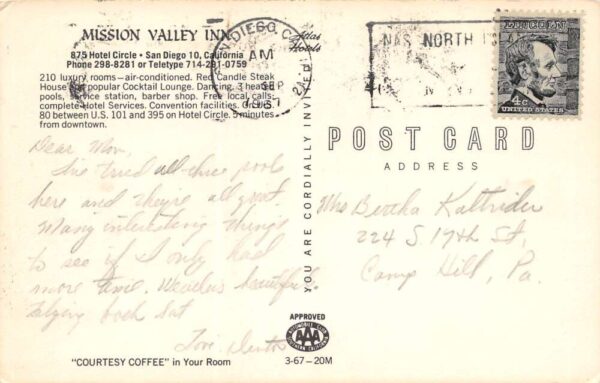 MISSION VALLEY INN
Atlas
Hotels
875 Hotel Circle • San Diego 10, California
Phone 298-8281 or Teletype 714-291-0759
210 luxury rooms—air-conditioned. Red Candle Steak
House popular Cocktail Lounge. Dancing. 3 heated
pools, service station, barber shop. Free local calls—
complete Hotel Services. Convention facilities. On U.S.
80 between U.S. 101 and 395 on Hotel Circle. 5 minutes
from downtown.
SAN DIEGO CA
AM
SEP
1967
NAS NORTH
LINCOLN
4c
UNITED STATES
POST CARD
ADDRESS
YOU ARE CORDIALLY INVITED
Dear Mom,
I've tried all three pools
here and they're all great
Many interesting things
to see if I only had
more time. Weather beautiful
back Sat
Love
Mrs Bertha Kattrider
224 S. 19th St,
Camp Hill, Pa.
APPROVED
AUTOMOBILE CLUB
AAA
SOUTHERN CALIFORNIA
3-67-20M
"COURTESY COFFEE" in Your Room